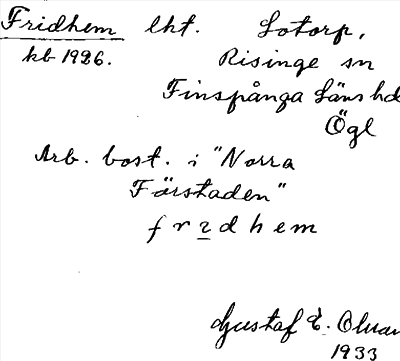 Fridhem lht. Lotorp,
kb 1926. Risinge sn
Finspånga Läns hd
Ögl
Arb. bost. i "Norra
Förstaden"
fridhem
Gustaf E.
1933